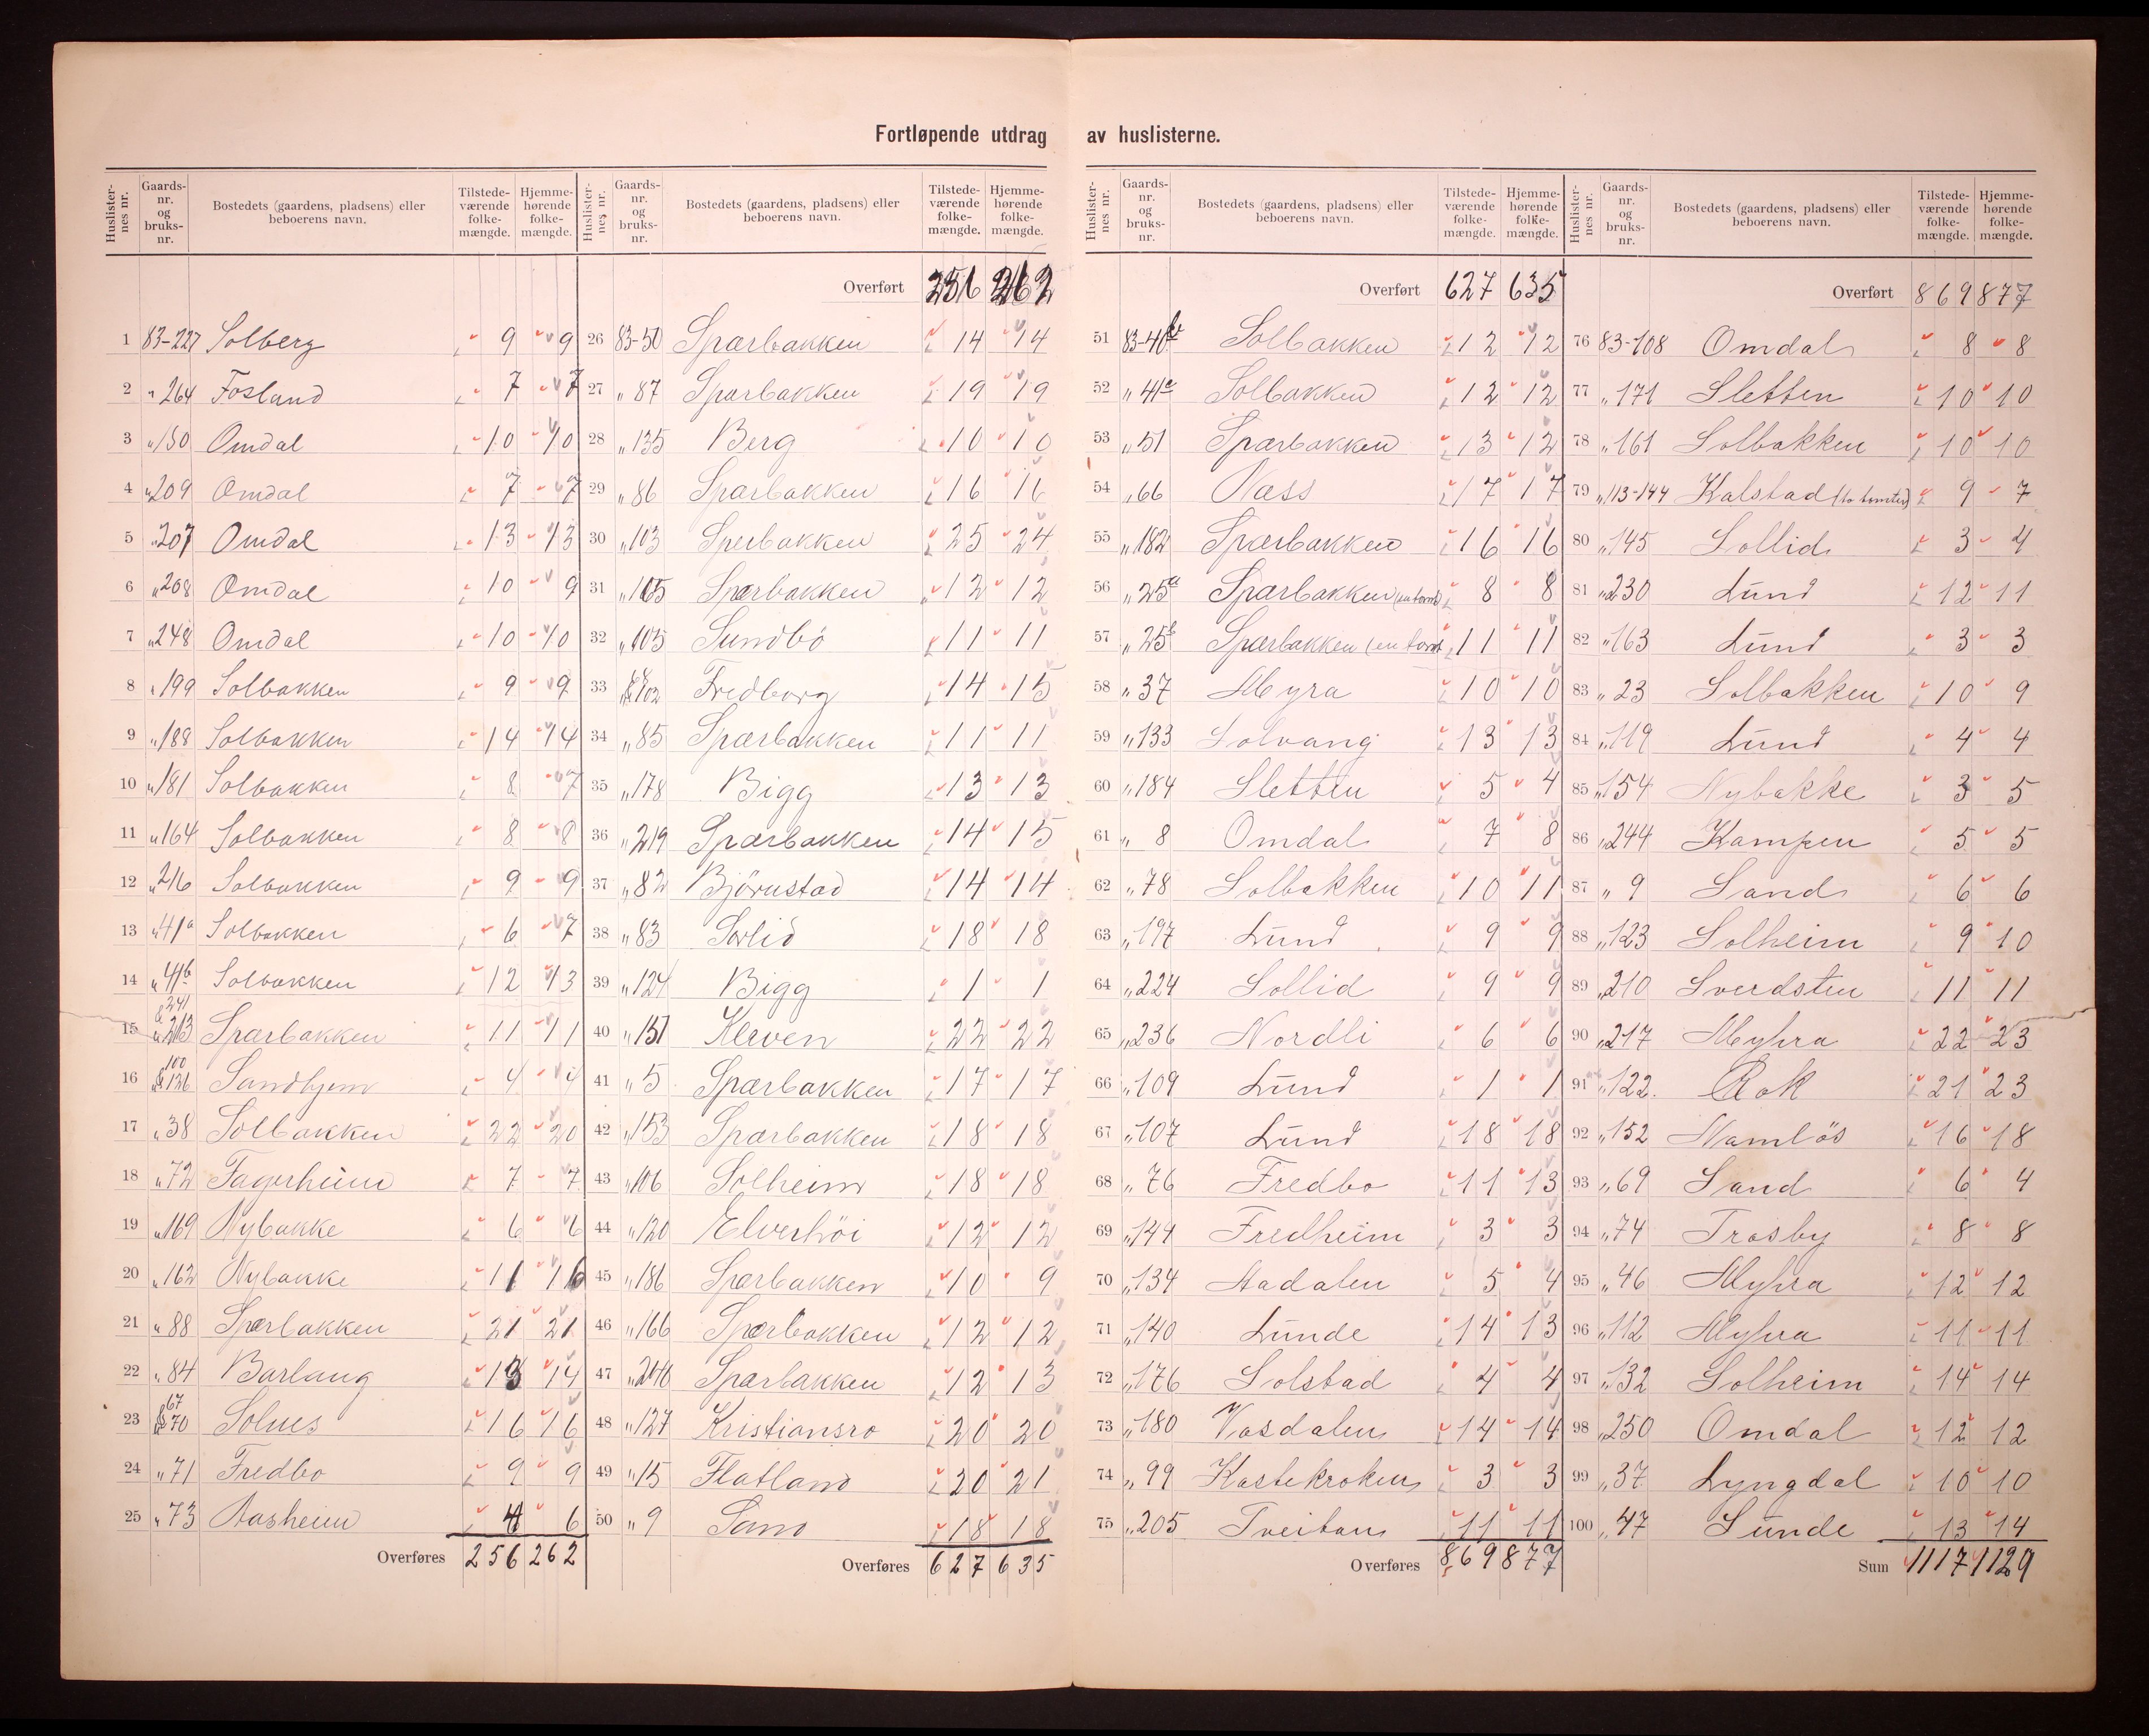 Fortløpende utdrag av huslisterne.
Huslister-nes nr. Gaards-nr. og bruks-nr. Bostedets (gaardens, pladsens) eller beboerens navn. Tilstede-værende folke-mængde. Hjemme-hørende folke-mængde.
1 83-227 Solberg 9 9
2 " 264 Fosland 7 7
3 " 150 Omdal 10 10
4 " 209 Omdal 7 7
5 " 207 Omdal 13 13
6 " 268 Omdal 10 9
7 " 248 Omdal 10 10
8 " 199 Solbakken 9 9
9 " 188 Solbakken 14 14
10 " 181 Solbakken 8 7
11 " 164 Solbakken 8 8
12 " 216 Solbakken 9 9
13 " 41a Solbakken 6 7
14 " 41b Solbakken 12 13
15 " 213 & 241 Sparbakken 11 11
16 100 & 126 Sandhjem 4 4
17 " 38 Solbakken 22 20
18 " 72 Fagerheim 7 7
19 " 169 Nybakke 6 6
20 " 162 Nybakke 11 16
21 " 88 Sparbakken 21 21
22 " 84 Barlaug 13 14
23 67 & 70 Solnes 16 16
24 " 71 Fredbo 9 9
25 " 73 Aasheim 4 6
Overføres 256 262
Huslister-nes nr. Gaards-nr. og bruks-nr. Bostedets (gaardens, pladsens) eller beboerens navn. Tilstede-værende folke-mængde. Hjemme-hørende folke-mængde.
Overført 256 262
26 83-50 Sparbakken 14 14
27 " 87 Sparbakken 19 19
28 " 135 Berg 10 10
29 " 86 Sparbakken 16 16
30 " 103 Sperbakken 25 24
31 " 165 Sparbakken 12 12
32 " 105 Sundbö 11 11
33 102 Fredborg 14 15
34 " 85 Sparbakken 11 11
35 " 178 Bigg 13 13
36 " 219 Sparbakken 14 15
37 " 82 Björnstad 14 14
38 " 83 Sorlid 18 18
39 " 124 Bigg 1 1
40 " 151 Kleven 22 22
41 " 5 Sparbakken 17 17
42 " 153 Sparbakken 18 18
43 " 106 Solheim 18 18
44 " 120 Elverhöi 12 12
45 " 186 Sparbakken 10 9
46 " 166 Sparbakken 12 12
47 " 240 Sparbakken 12 13
48 " 127 Kristiansro 20 20
49 " 15 Flatland 20 21
50 " 9 Sand 18 18
Overføres 627 635
Huslister-nes nr. Gaards-nr. og bruks-nr. Bostedets (gaardens, pladsens) eller beboerens navn. Tilstede-værende folke-mængde. Hjemme-hørende folke-mængde.
Overført 627 635
51 83-40 Solbakken 12 12
52 " 41c Solbakken 12 12
53 " 51 Sparbakken 13 12
54 " 66 Næss 17 17
55 " 182 Sparbakken 16 16
56 " 25a Sparbakken 8 8
57 " 25b Sparbakken (en tomt 11 11
58 " 37 Myra 10 10
59 " 133 Solvang 13 13
60 " 184 Sletten 5 4
61 " 8 Omdal 7 8
62 " 78 Solbakken 10 11
63 " 197 Lund 9 9
64 " 224 Sollid 9 9
65 " 236 Nordli 6 6
66 " 109 Lund 1 1
67 " 107 Lund 18 18
68 " 76 Fredbo 11 13
69 " 144 Fredheim 3 3
70 " 134 Aadalen 5 4
71 " 140 Lunde 14 13
72 " 176 Solstad 4 4
73 " 180 Vasdalen 14 14
74 " 99 Kastekroken 3 3
75 " 205 Tveitan 11 11
Overføres 869 877
Huslister-nes nr. Gaards-nr. og bruks-nr. Bostedets (gaardens, pladsens) eller beboerens navn. Tilstede-værende folke-mængde. Hjemme-hørende folke-mængde.
Overført 869 877
76 83-108 Omdal 8 8
77 " 171 Sletten 10 10
78 " 161 Solbakken 10 10
79 " 113-144 Kalstad (to tomter) 9 7
80 " 145 Sollid 3 4
81 " 230 Lund 12 11
82 " 163 Lund 3 3
83 " 23 Solbakken 10 9
84 " 119 Lund 4 4
85 " 154 Nybakke 3 5
86 " 244 Kampen 5 5
87 " 9 Sand 6 6
88 " 123 Solheim 9 10
89 " 210 Sverdsten 11 11
90 " 217 Myhra 22 23
91 " 122 Rok 21 23
92 " 152 Namlös 16 18
93 " 69 Sand 6 4
94 " 74 Trosby 8 8
95 " 46 Myhra 12 12
96 " 112 Myhra 11 11
97 " 132 Solheim 14 14
98 " 250 Omdal 12 12
99 " 37 Lyngdal 10 10
100 " 47 Lunde 13 14
Sum 1117 1129